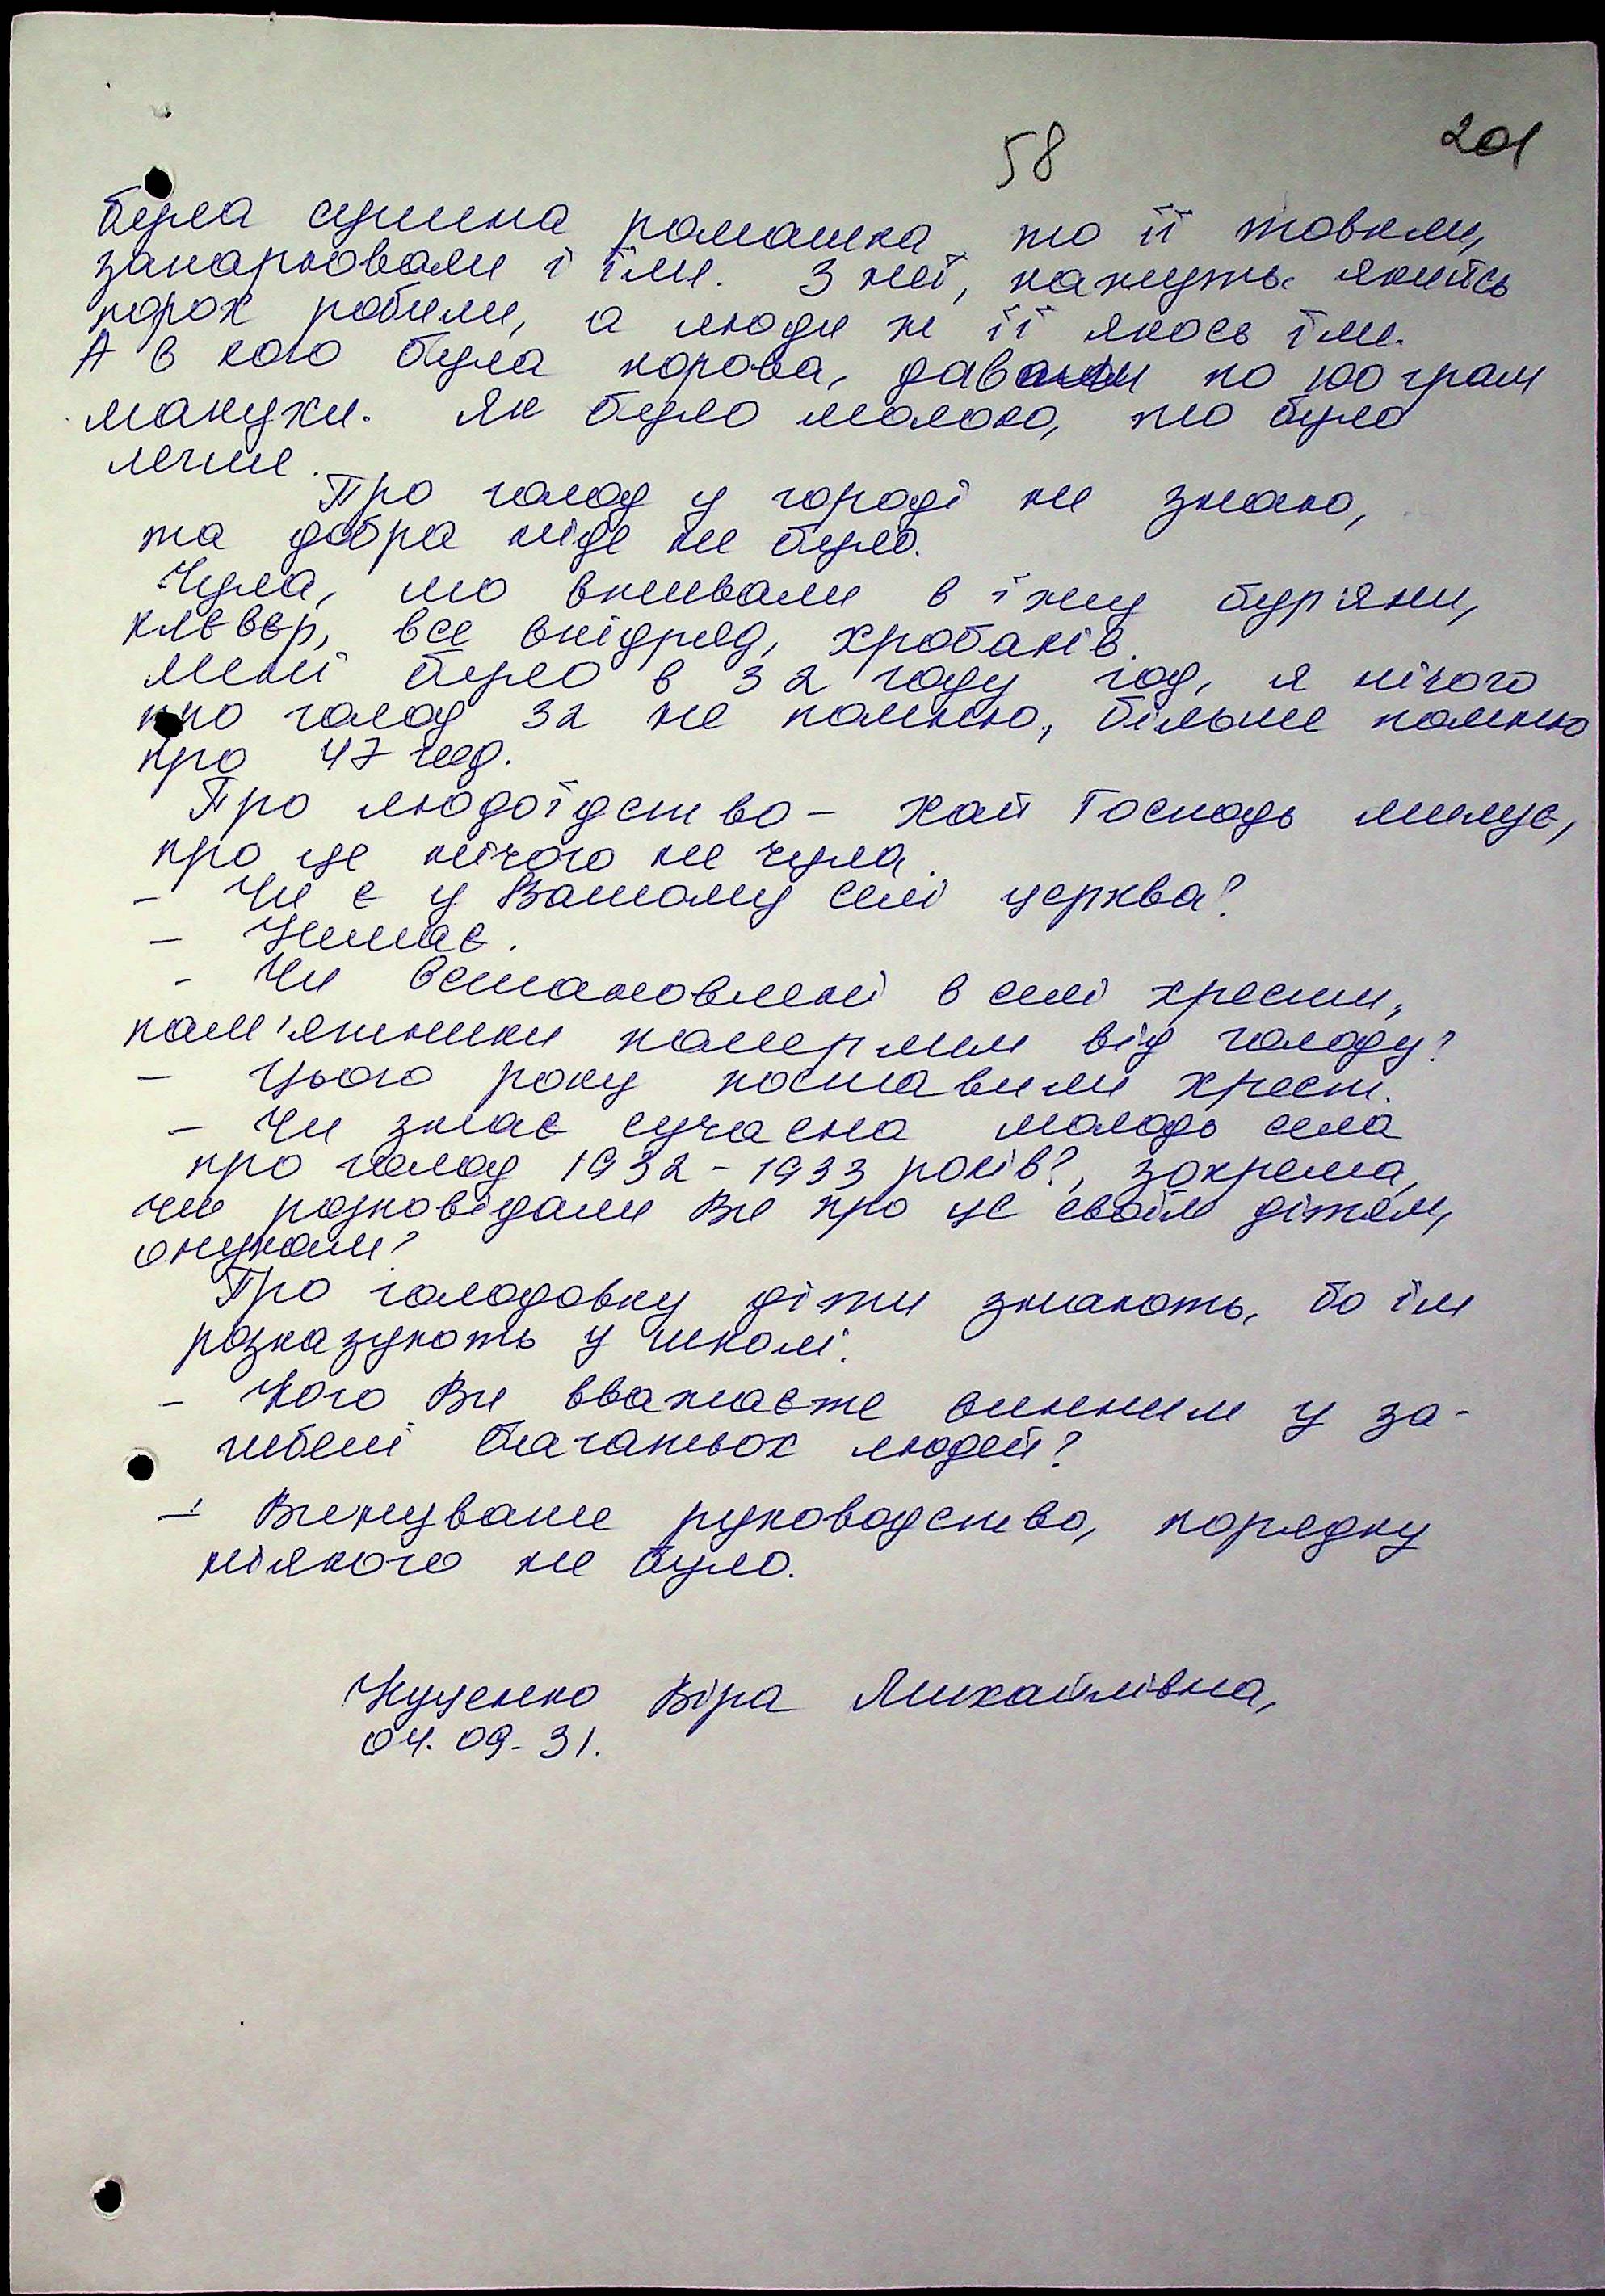 58
201
була сушена ромашка, то її товкли,
запарювали і їли. З неї, кажуть, якийсь
порох робили, а люди ж її якось їли.
А в кого була корова, давали по 100 грам
макухи. Як було молоко, то було
легше.
Про голод у городі не знаю,
та добра ніде не було.
Чула, що вживали в їжу бур'яни,
клєвєр, все впідряд, хробаків.
Мені було в 32 году год, я нічого
про голод 32 не помню, більше помню
про 47 год.
Про людоїдство – хай Господь милує,
про це нічого не чула.
– Чи є у Вашому селі церква?
– Немає.
– Чи встановлені в селі хрести,
пам'ятники померлим від голоду?
– Цього року поставили хрест.
– Чи знає сучасна молодь села
про голод 1932 – 1933 років?, зокрема,
чи розповідали Ви про це своїм дітям,
онукам?
Про голодовку діти знають, бо їм
розказують у школі.
– Кого Ви вважаєте винним у за-
гибелі багатьох людей?
– Винувате руководство, порядку
ніякого не було.
Куценко Віра Михайлівна,
04. 09. 31.